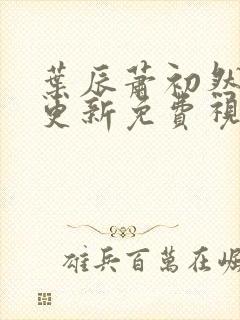 葉辰蕭初然
更新免費視
雄兵百萬在崛